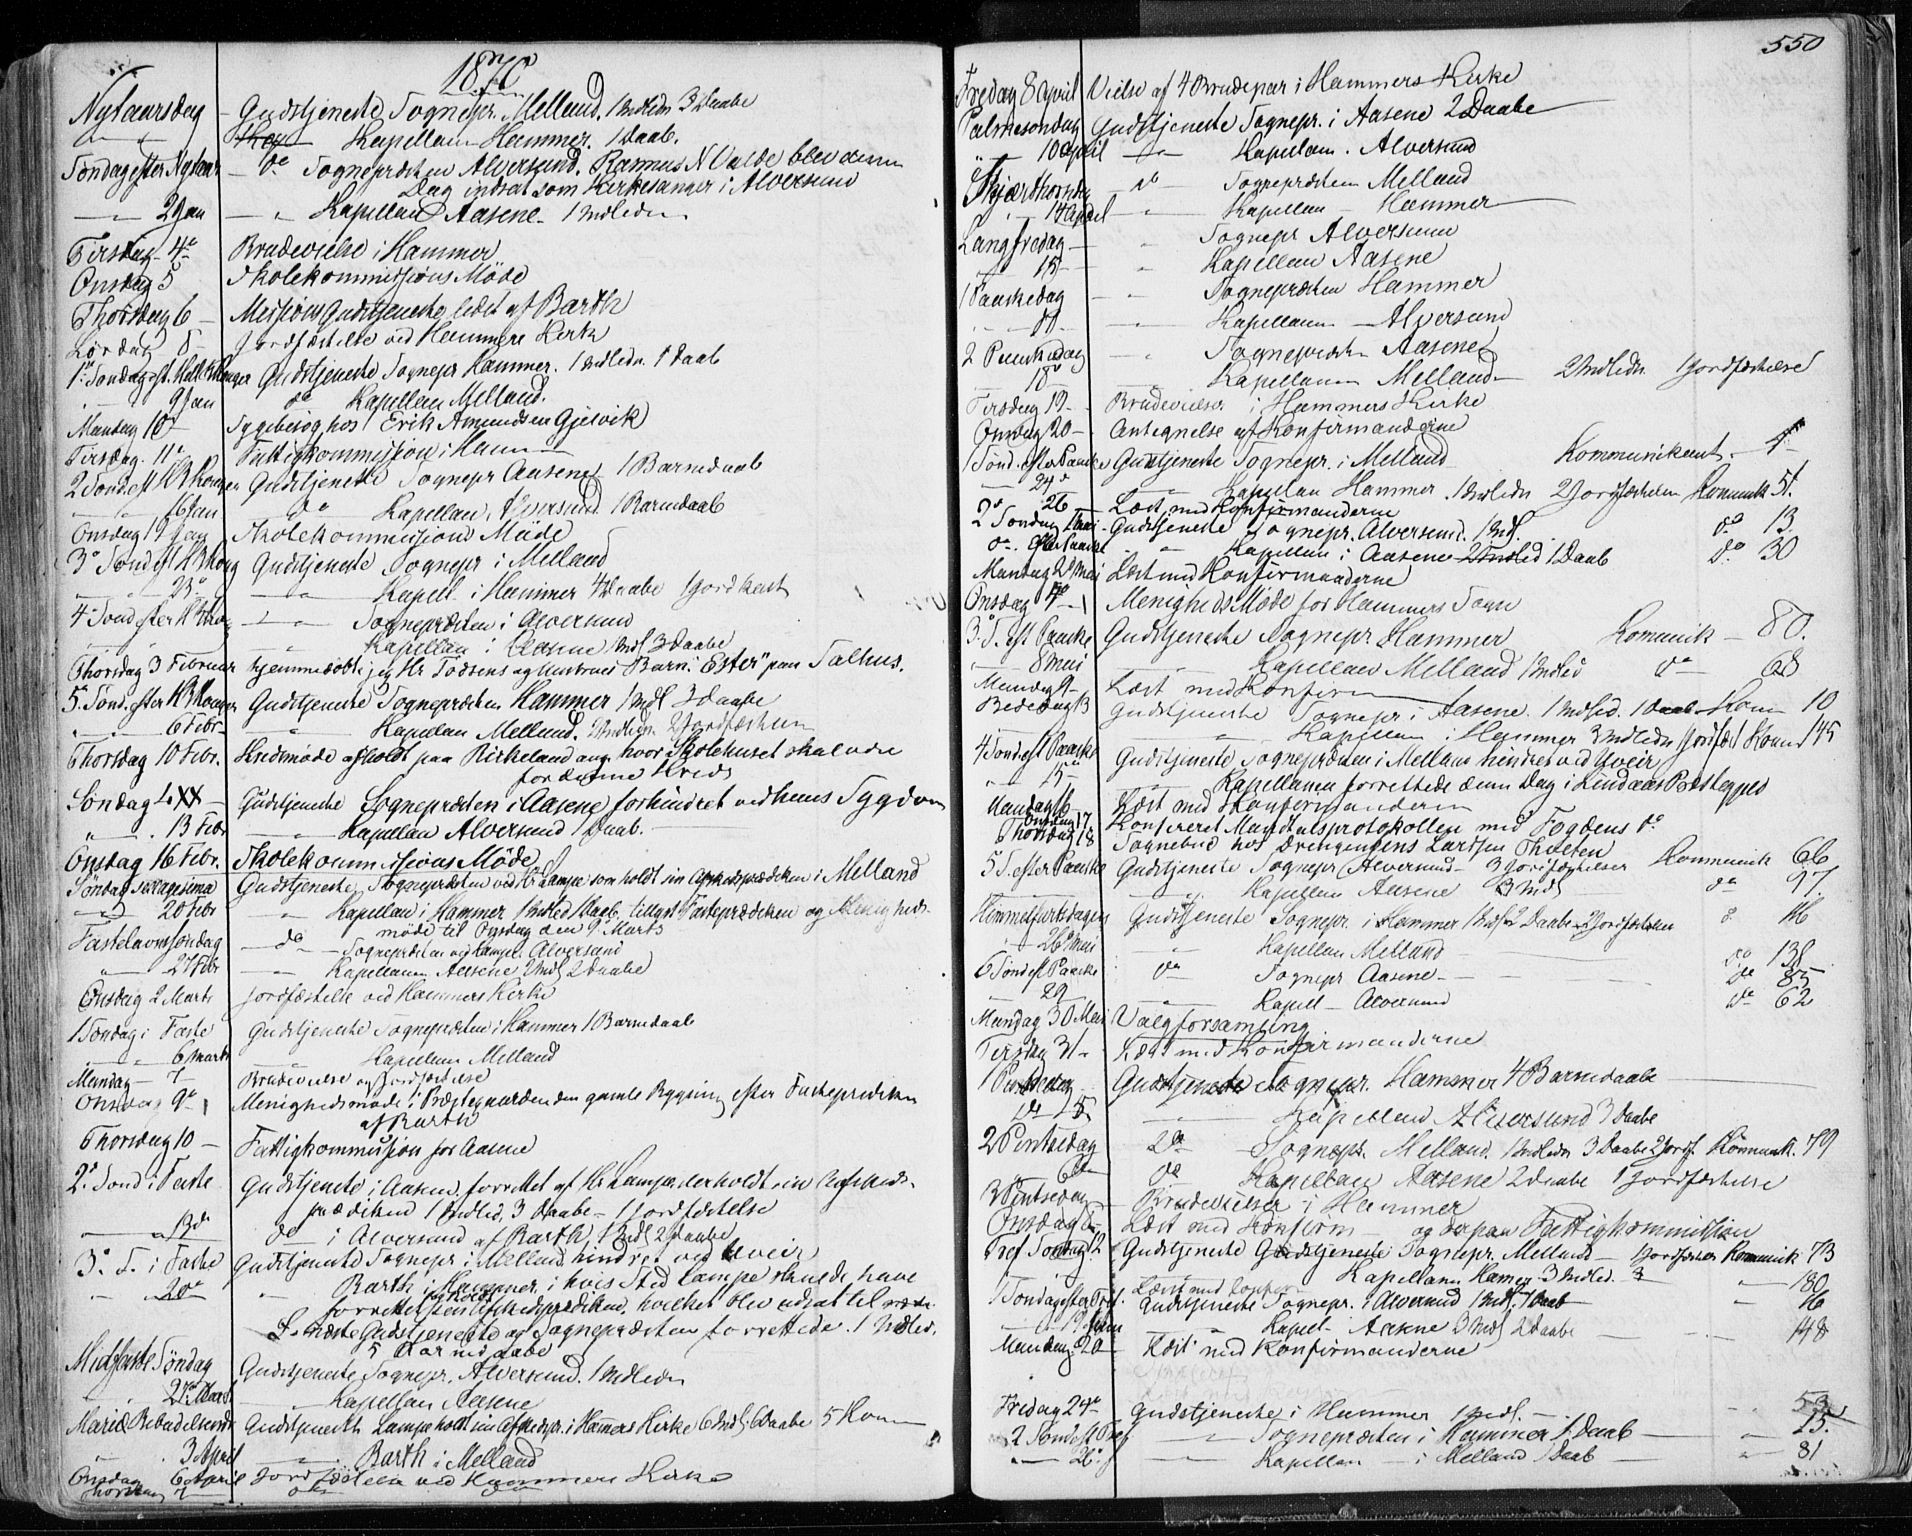 1870
Nytaarsdag Gudstjeneste Sognepr. Melland. 1 Indledn 3 Daabe
Kapellan Hammer. 1 Daab.
Søndag efter Nytaar do Sognepræsten Alversund. Rasmus N Valde blev denne
Dag indsat som Kirkesanger i Alversund
2 Jan Kapellan Aasene 1 Indledn
Tirsdag 4de Brudevielse i Hammer
Onsdag 5 Skolekommissions Møde
Thorsdag 6 Missions Gudstjeneste ledet af Barth
Lørdag 8 Jordfæstelse ved Hammers Kirke
1 Søndag eft. Hell 3 Konger Gudstjeneste Sognepr Hammer. 1 Indledn. 1 Daab
9 Jan do Kapellan Melland.
Mandag 10 Sygebesøg hos Erik Amundsen Gjesvik
Tirsdag 11te Fattigkommission i Ham
2 Sønd. eft H3 Konger Gudstjeneste Sognepr Aasene 1 Barnedaab
16 Jan do Kapellan Alversund 1 Barnedaab
Onsdag 19 Jan Skolekommissions Møde
3de Sønd eft H3 Kong Gudstjeneste Sognepr i Melland
23de Kapell. i Hammer 4 Daabe 1 Jordkast
4de Sønd efter H3 Kong Sognepræsten i Alversund
Kapellan i Aasene 1 Indl 3 Daabe
Thorsdag 3 Februar hjemmedøbte jeg Hr Tødsens og Hustrues Barn "Ester" paa Talhus.
5. Sønd. efter H3 Konger Gudstjeneste Sognepræsten Hammer 1 Indl 2 Daabe
6 Febr. Kapellan Melland. 2 Indledn 2 Jordfæstelser
Thorsdag 10 Febr. Kredsmøde afholdt paa Birkeland ang. hvor Skolehuset skal være
for denne Kreds
Søndag LXX Gudstjeneste Sognepræsten i Aasene forhindret ved hans Sygdom
13 Febr Kapellan Alversund 1 Daab.
Onsdag 16 Febr. Skolekommissions Møde
Søndag Sexagesima Gudstjeneste Sognepræsten ved Hr Lampe som holdt sin Afskedsprædiken i Melland
20 Febr Kapellan i Hammer 1 Indled 1 Daab. tillyst Fasteprædiken og Menigheds-
møde til Onsdag den 9. Marts
Fastelavnssøndag do Sognepræsten ved Lampe Alversund
27 Febr Kapellanen Aasene 2 Indl 2 Daabe
Onsdag 2 Marts Jordfæstelse ved Hammers Kirke
1 Søndag i Faste Gudstjeneste Sognepræsten i Hammer 1 Barnedaab
6 Marts Kapellan Melland
Mandag 7 Brudevielse og Jordfæstelse
Onsdag 9de Menighedsmøde i Præstegaarden den gamle Bygning efter Fasteprediken
af Barth
Thorsdag 10 Fattigkommission for Aasene
2. Sønd i Faste Gudstjeneste i Aasene forrettet af Hr Lampe der holdt sin Afskeds-
prædiken 1 Indled, 3 Daabe 1 Jordfæstelse
13de do i Alversund af Barth, 1 Indl 2 Daabe
3. S. i Faste Gudstjeneste Sognepr i Melland hindret ved Uveir
20de Barth i Hammer i hvis Sted Lampe skulde have
forrettet sin Afskedsprediken, hvilket blev udsat til
næste Gudstjeneste og Sognepræsten forrettede. 1 Indled.
5 Barnedaabe
Midfaste Søndag Gudstjeneste Sognepr. Alversund. 1 Indledn
27 Marts Kapellan Aasene
Mariæ Bebudelsesd Gudstjeneste Lampe holdt sin Afskedspr. i Hammers Kirke 6 Indl 6 Daabe 5 Kom
3 April Barth i Melland
Onsdag 6 April Jordfæstelse ved Hammers Kirke
Thorsdag 7 do
550
Fredag 8 April Vielse af 4 Brudepar i Hammers Kirke
Palmesøndag Gudstjeneste Sognepr. i Aasene 2 Daabe
10 April Kapellan. Alversund
Skjærthorsdag do Sognepræsten Melland
14 April Kapellan Hammer
Langfredag Sognepr Alversund
15 Kapellan Aasene
1 Paaskedag Sognepræsten Hammer
17 Kapellanen Alversund
2 Paaskedag Sognepræsten Aasene
18 Kapellanen Melland 2 Indledn 1 Jordfæstelse
Tirsdag 19 Brudevielser i Hammers Kirke
Onsdag 20 Antegnelse af Konfirmanderne
1 Sønd. efter Paaske Gudstjeneste Sognepr. i Melland Kommunikant. 4
24de Kapellan Hammer 1 Indledn 2 Jordfæstelser Komunik 51.
26 Læst med Konfirmanderne
2 Søndag Gudstjeneste Sognepr. Alversund. 1 Indl. do 13
efter Paaske Kapellan i Aasene 2 Indled 1 Daab do 30
Mandag 2 Mai Læst med Konfirmanderne
Onsdag 4 Menigheds Møde for Hammers Sogn
3. S. eft Paaske Gudstjeneste Sognepr Hammer Komunik 80.
8 Mai Kapellan Melland 1 Indled do 68
Mandag 9 Læst med Konfirm
Bededag 13 Gudstjeneste Sognepr i Aasene. 1 Indled. 1 Daab Kom 10
Kapellan i Hammer 3 Indledn Jordfæst Komm 145
4 Sønd eft Paaske Gudstjeneste Sognepræsten i Melland hindret ved Uveir
15 Kapellanen forrettede denne Dag i Lindaas Præstegjeld
Mandag 16 Læst med Konfirmanderne
Onsdag 17 Konfereret Mandtalsprotokollen med Fogdens do
Thorsdag 18 Sognebud hos Larssen
5 S. efter Paaske Gudstjeneste Sognepr Alversund 3 Jordfæstelser Kommunik 66
Kapellan Aasene 3 Indl do 97.
Himmelfartsdagen Gudstjeneste Sognepr. i Hammer 1 Indl 2 Daabe 2 Jordfæstelser 116
26 Mai Kapellan Melland do 138
6 Sønd eft Paaske do Sognepr Aasene do 85
29 Kapell Alversund do 62
Mandag 30 Mai Valgforsamling
Tirsdag 31 Læst med Konfirmanderne
1 Pintsedag Gudstjeneste Sognepr. Hammer 4 Barnedaabe
5 Kapellan Alversund 3 Daabe
2 Pintsedag Sognepr. Melland. 1 Indledn 3 Daabe 2 Jordf. Kommunik. 79
6 do Kapellan Aasene 2 Daabe 1 Jordfæstelse
3 Pintsedag Brudevielser i Hammer
Onsdag 8 Læst med Konfirm og derpaa Fattigkommission
Tref Søndag 12 Gudstjeneste Gudstjeneste Sognepr. Melland Jordfæstelser Komunik 73
Kapellan Hamer 3 Indled. 180
1 Søndag efter Tref. Gudstjeneste Sognepr. i Alversund 1 Indl. 1 Daab 16
19 Juni Kapel Aasene 3 Indl 2 Daabe 148
Mandag 20 Læst med Konfirmanderne
Fredag 24de Gudstjeneste i Hammer 1 Indl. 53
2 Sønd eft Tref Sognepræsten i Hammer 1 Daab 15.
26. Kapellan i Melland 1 Daab 81